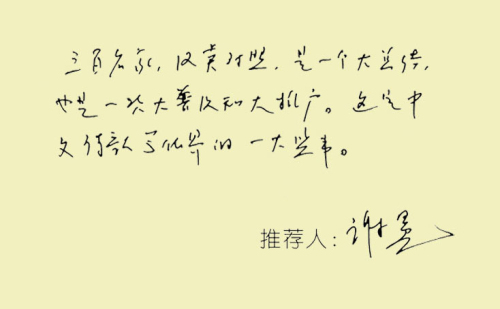 三百名家,汉英对照,是一个大总结,
也是一次大普及和大推广。这是中
文诗歌与世界的一大盛事。
推荐人:谢冕